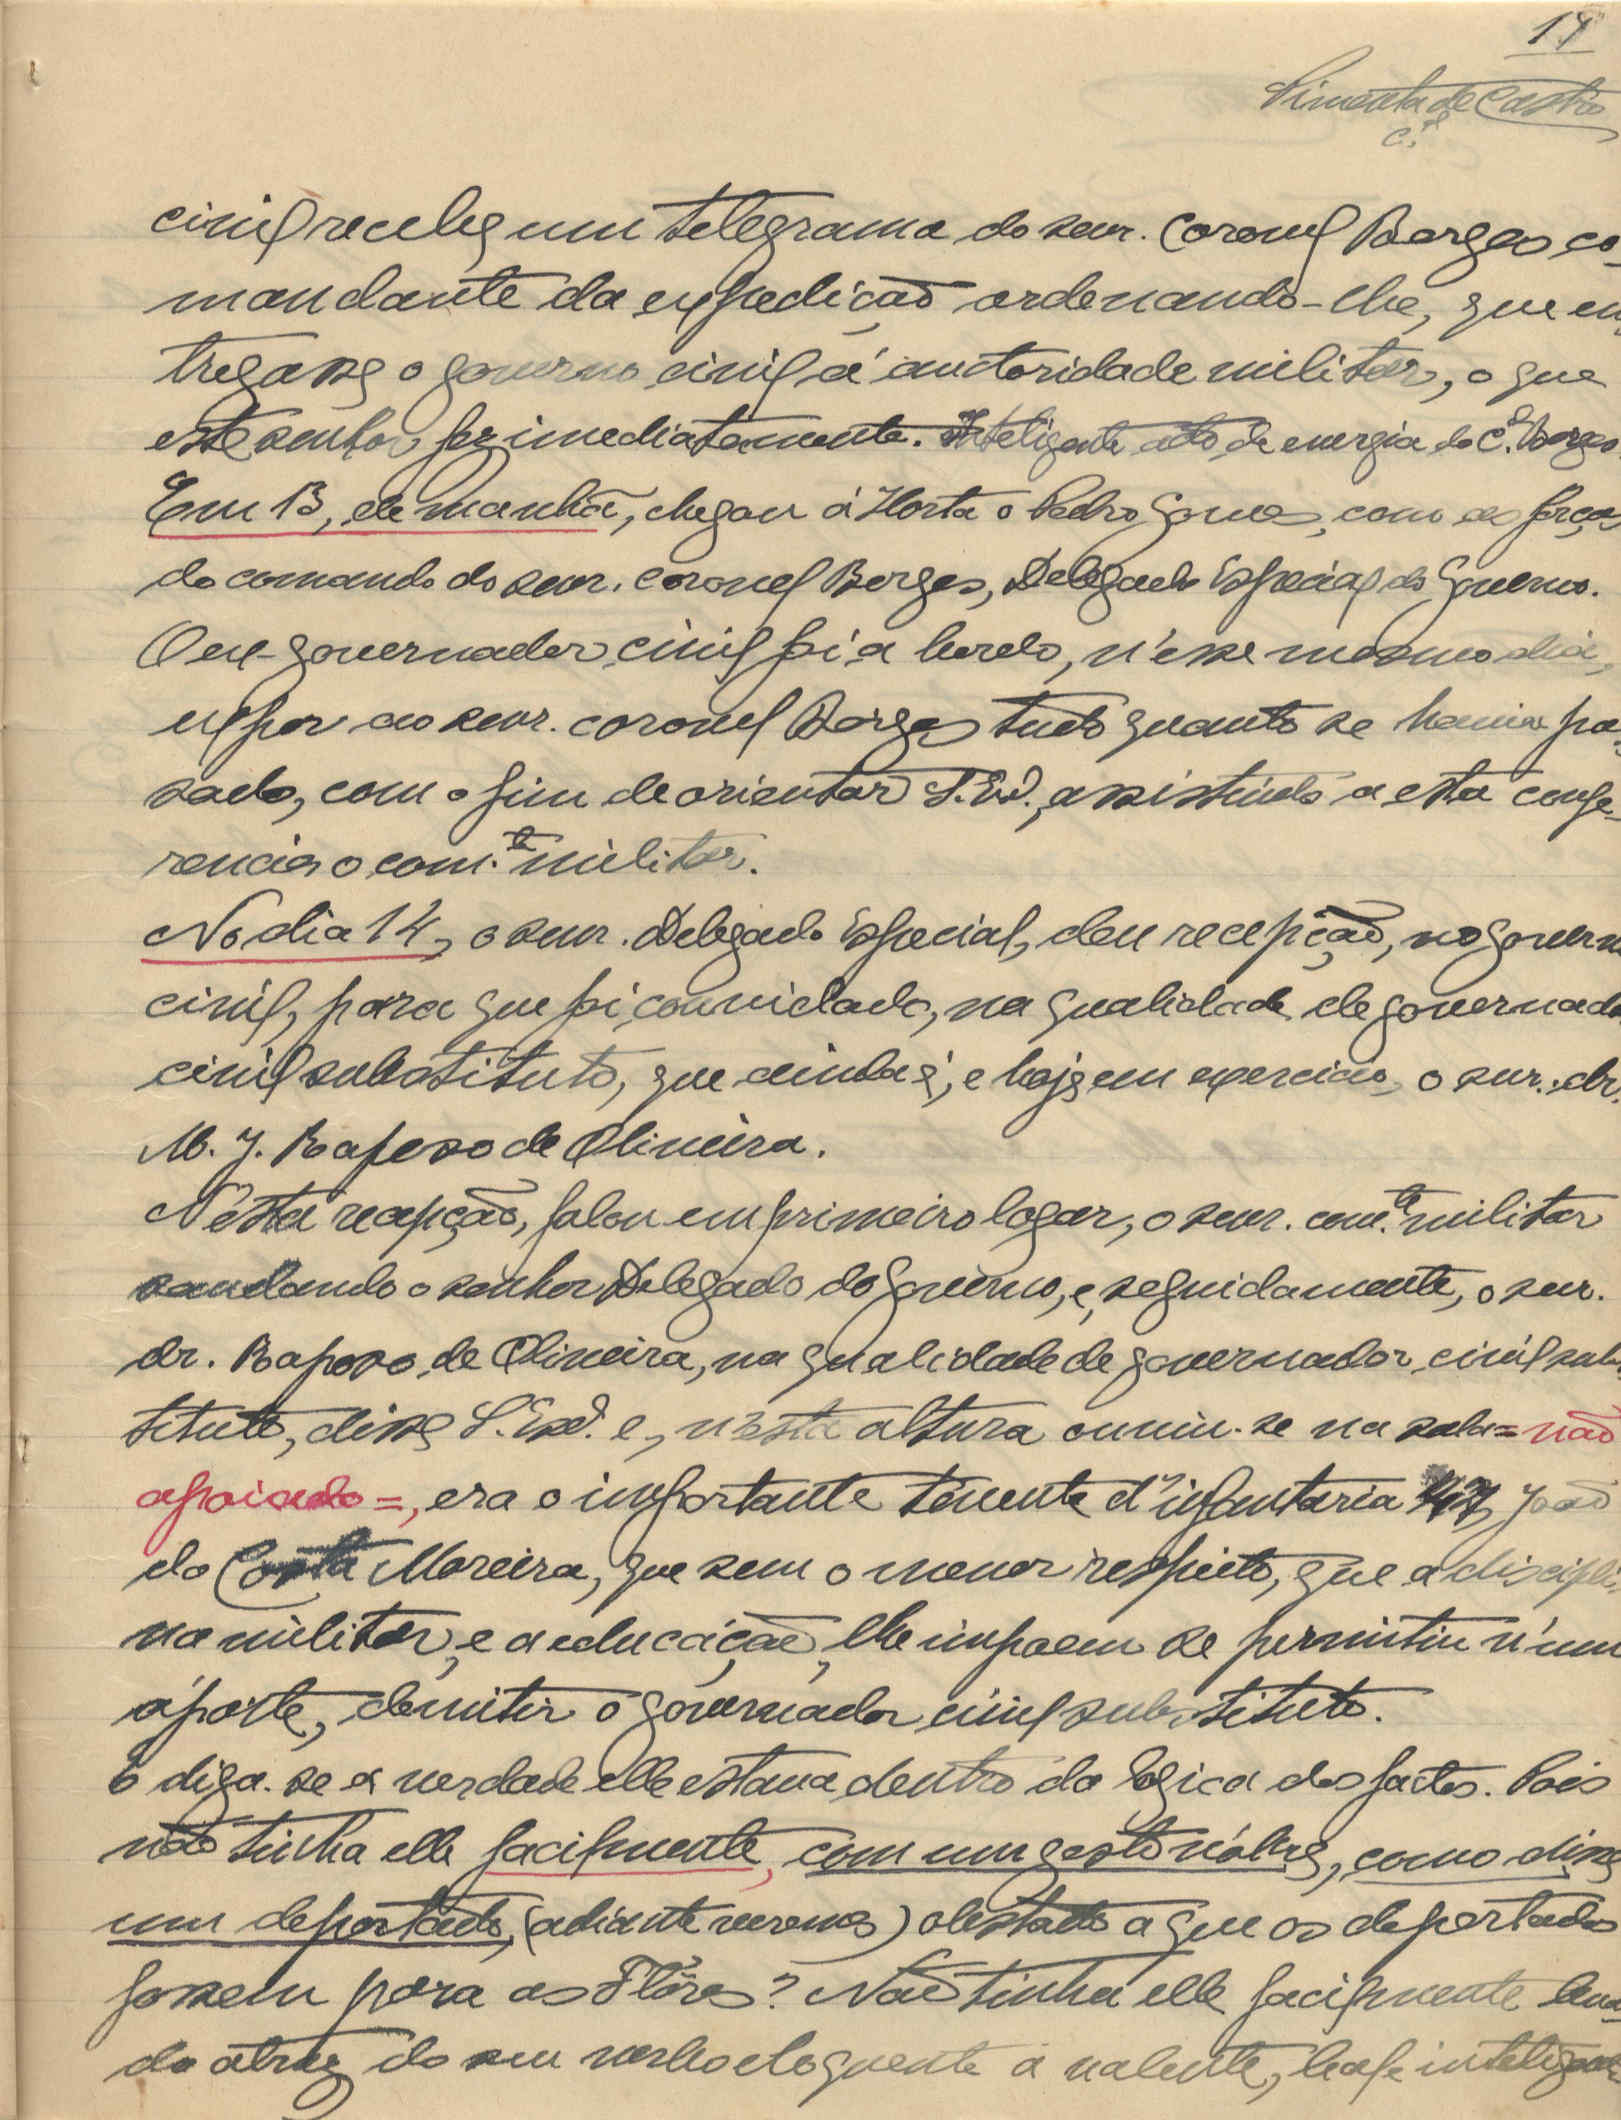 17
Pimenta de Castro
C.el
civil recebeu um telegrama do snr. coronel Borges co-
mandante da expedição ordenando-lhe, que en
tregasse o governo civil á auctoridade militar, o que
este senhor fez imediatamente. Inteligente acto de energia do C.el Borges.
Em 13, de manhã, chegou á Horta o Pedro Gomes, com as forças
do comando do snr. coronel Borges, Delegado Especial do Governo.
O ex-governador civil foi a bordo, n'esse mesmo dia,
expor ao snr. coronel Borges tudo quanto se havia pas-
sado, com o fim de orientar S. Ex.ª, assistindo a esta confe-
rencia o com.te militar.
No dia 14, o snr. Delegado Especial, deu recepção, no governo
civil, para que foi convidado, na qualidade de governador
civil substituto, que ainda é, e hoje em exercicio, o snr. dr.
M. J. Raposo de Oliveira.
N'esta recepção, falou em primeiro logar, o snr. com.te militar
saudando o senhor Delegado do Governo, e, seguidamente, o snr.
dr. Raposo de Oliveira, na qualidade de governador civil subs
tituto, disse S. Exª. e, n'esta altura ouviu-se na sala = não
apoiado =, era o importante tenente d'infantaria João
da Costa Moreira, que sem o menor respeito, que a discipli-
na militar, e a educação, lhe impoem se permitiu n'um
áparte, demitir o governador civil substituto.
E diga-se a verdade elle estava dentro da logica dos factos. Pois
não tinha elle facilmente, com um gesto nobre, como disse
um deportado, (adiante veremos) obstado a que os deportados
fossem para as Flôres? Não tinha elle facilmente leva-
do atraz do seu verbo eloquente a valente, leal e inteligente